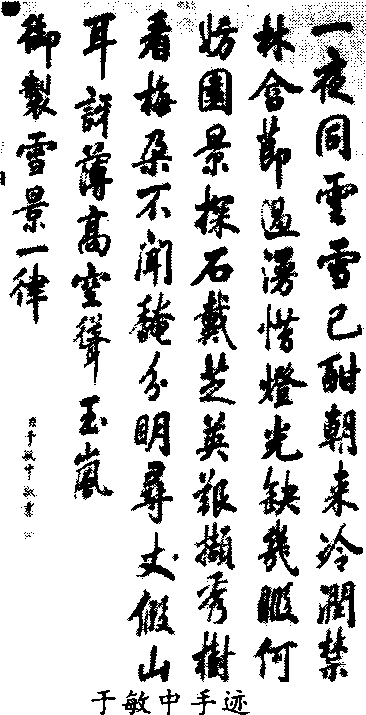 一夜同雲雪已酣朝来冷潤禁
林含節漫惜燈光缺幾暇何
妨園景探石戴芝英艱擷秀樹
看梅朵不聞馣分明尋丈假山
耳訝薄高空聳玉嵐
御製雪景一律
臣于敏中敬書
于敏中手迹